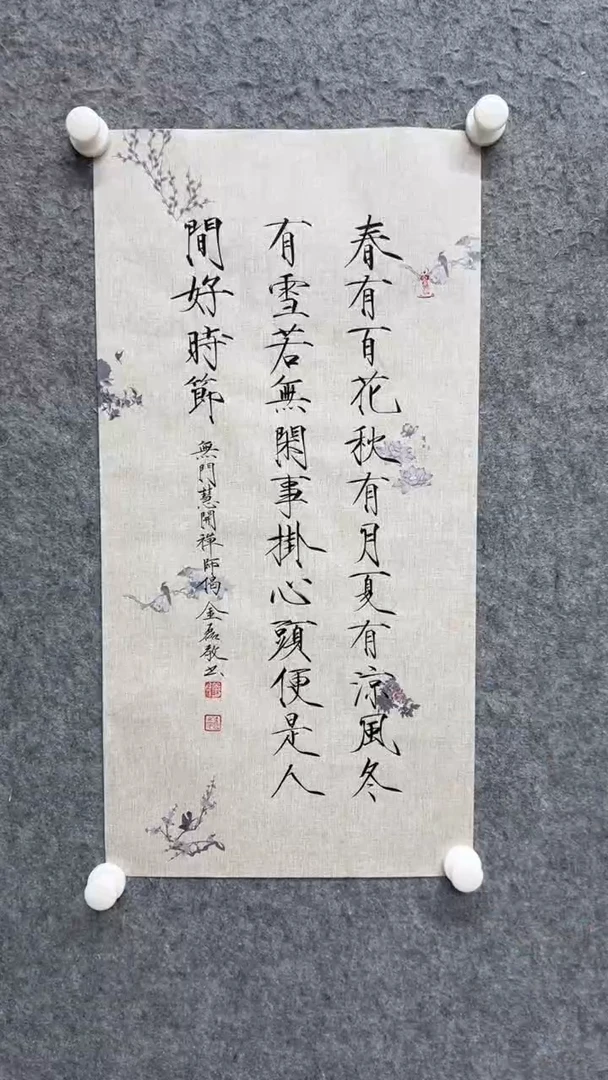 春有百花秋有月夏有涼風冬
有雪若無閑事掛心頭便是人
間好時節
無門慧開禪師偈 金磊敬书